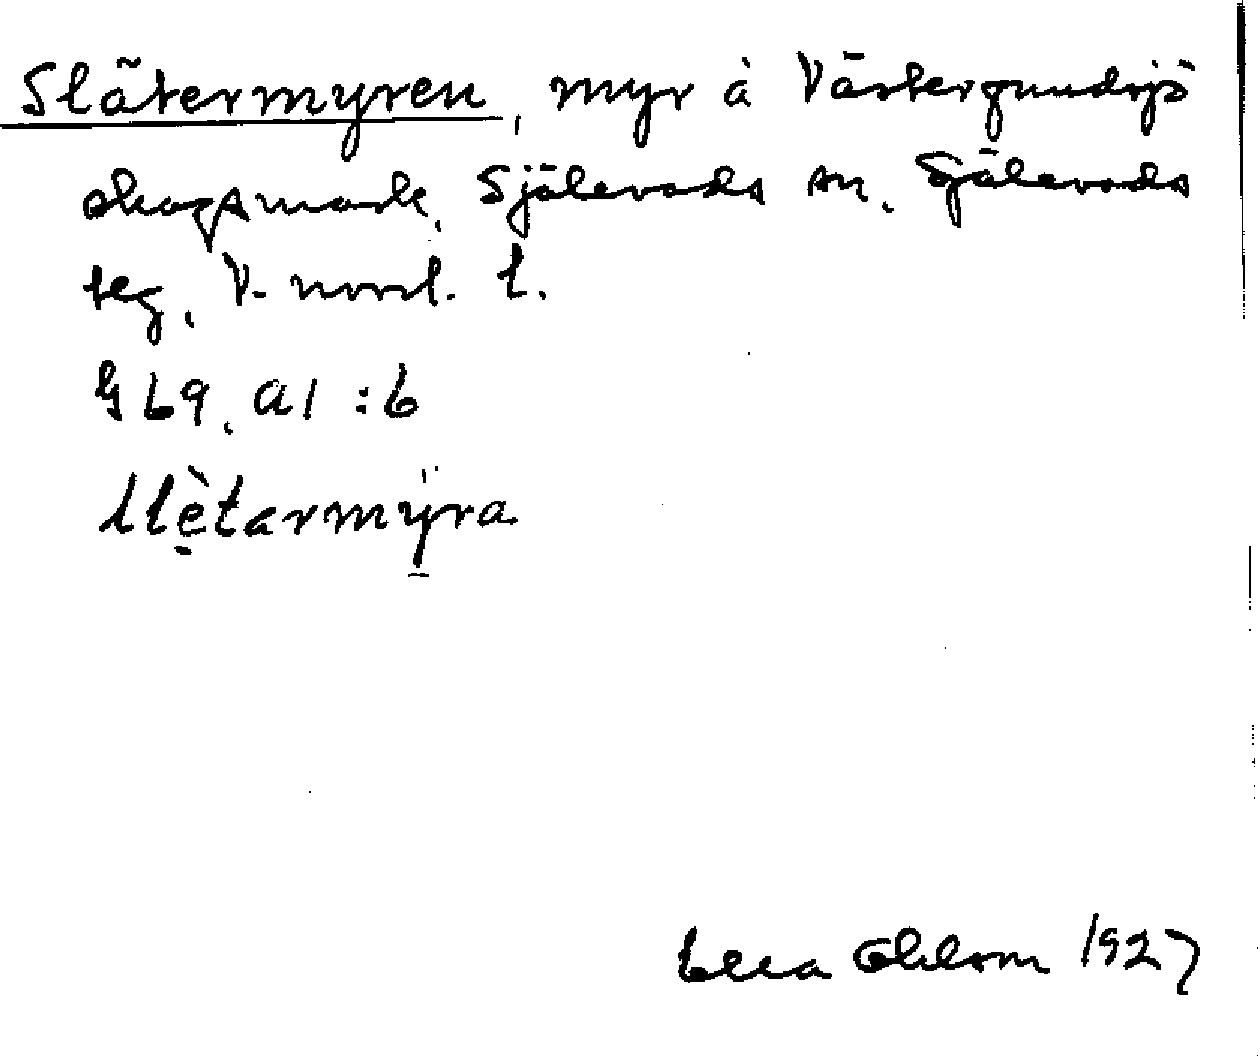 Slåtermyren, myr å Västergundsjö
skogsmark, Själevads sn. Själevads
tg, V-norrl. l.
G 69, a1 : 6
slètarmy̎ra
Ohlsom 1927